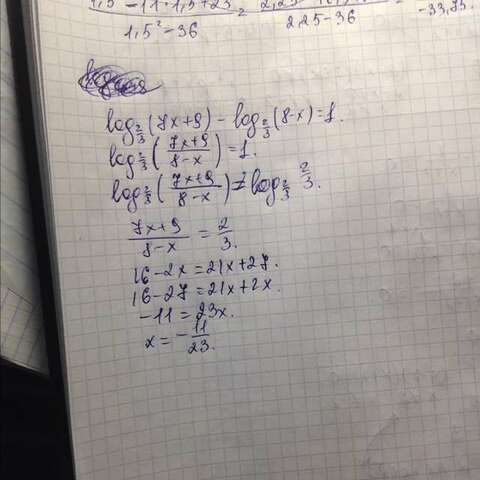 1,5² - 36
2,25 - 36
-33,75.
log_{2/3}(7x+9) - log_{2/3}(8-x) = 1.
log_{2/3}((7x+9)/(8-x)) = 1.
log_{2/3}((7x+9)/(8-x)) = log_{2/3} 2/3.
(7x+9)/(8-x) = 2/3.
16-2x=21x+27.
16-27=21x+2x.
-11=23x.
x=-11/23.